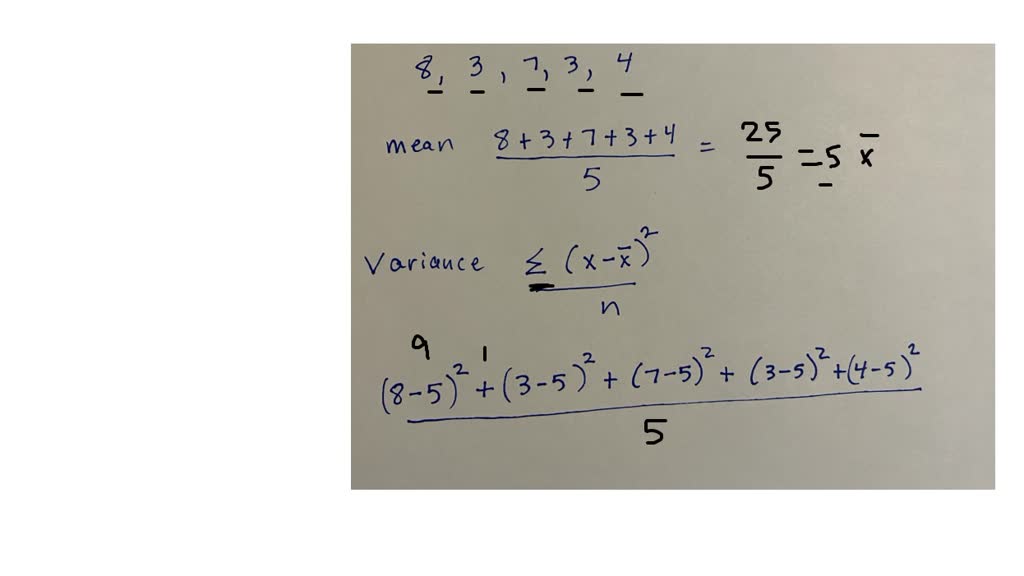 8, 3, 7, 3, 4
mean (8+3+7+3+4)/5 = 25/5 = 5 x̄
Variance Σ(x-x̄)²/n
9 1
((8-5)²+(3-5)²+(7-5)²+(3-5)²+(4-5)²)/5